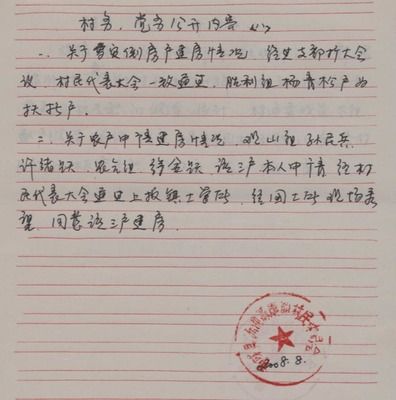 村务、党务公开内容(八)
一、关于雪灾倒房户建房情况，经支部扩大会
议，村民代表大会一致通过，胜利组杨青松户为
扶持户。
二、关于农户申请建房情况，山组孙民兵
许绪跃，组徐金跃，该三户本人申请，经村
民代表大会通过上报镇土管所，经国土所现场
，同意该三户建房。
2008.8.